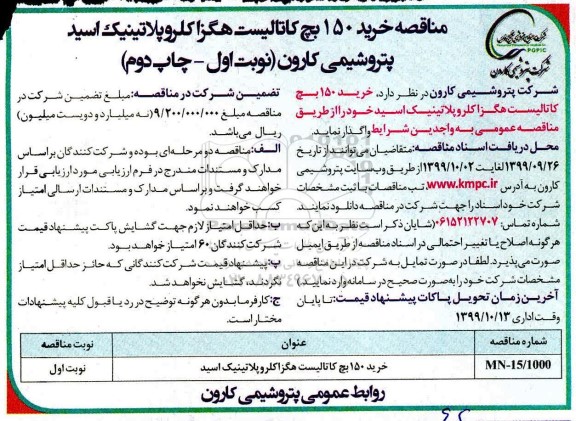 مناقصه خرید ۱۵۰ بچ کاتالیست هگزا کلروپلاتینیک اسید
پتروشیمی کارون (نوبت اول - چاپ دوم)
PGPIC
شرکت پتروشیمی کارون
شرکت پتروشیمی کارون در نظر دارد، خرید ۱۵۰ بچ
کاتالیست هگزا کلروپلاتینیک اسید خود را از طریق
مناقصه عمومی به واجدین شرایط واگذار نماید.
محل دریافت اسناد مناقصه: متقاضیان می‌توانند از تاریخ
۱۳۹۹/۰۹/۲۶ لغایت ۱۳۹۹/۱۰/۰۲ از طریق وب سایت پتروشیمی
کارون به آدرس www.kmpc.ir، تب مناقصات با ثبت مشخصات
شرکت خود اسناد را جهت شرکت در مناقصه دانلود نمایند.
شماره تماس: ۰۶۱۵۲۱۲۲۷۰۷ (شایان ذکر است نظر به این که
هرگونه اصلاح یا تغییر احتمالی در اسناد مناقصه از طریق ایمیل
صورت می‌پذیرد. لطفا در صورت تمایل به شرکت در این مناقصه
مشخصات شرکت خود را به صورت صحیح در سامانه وارد نمایند.)
آخرین زمان تحویل پاکات پیشنهاد قیمت: تا پایان
وقت اداری ۱۳۹۹/۱۰/۱۳
تضمین شرکت در مناقصه: مبلغ تضمین شرکت در
مناقصه مبلغ ۹/۲۰۰/۰۰۰/۰۰۰ (نه میلیارد و دویست میلیون)
ریال می‌باشد.
الف: مناقصه دو مرحله‌ای بوده و شرکت کنندگان بر اساس
مدارک و مستندات مندرج در فرم ارزیابی مورد ارزیابی قرار
خواهند گرفت و بر اساس مدارک و مستندات ارسالی امتیاز
کسب خواهند نمود.
ب: حداقل امتیاز لازم جهت گشایش پاکت پیشنهاد قیمت
شرکت کنندگان ۶۰ امتیاز خواهد بود.
پ: پیشنهاد قیمت شرکت کنندگانی که حائز حداقل امتیاز
نگردند، گشایش نخواهد شد.
ج: کارفرما بدون هرگونه توضیح در رد یا قبول کلیه پیشنهادات
مختار است.
شماره مناقصه عنوان نوبت مناقصه
MN-15/1000 خرید ۱۵۰ بچ کاتالیست هگزا کلروپلاتینیک اسید نوبت اول
روابط عمومی پتروشیمی کارون